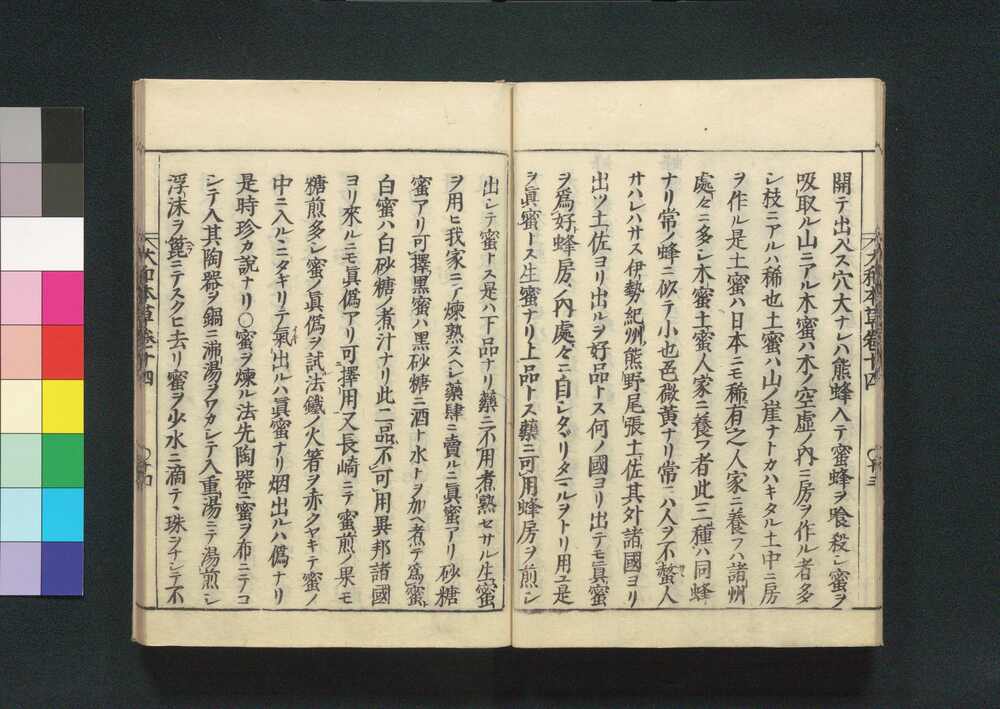 開テ出入ス穴大ナレハ熊蜂入テ蜜蜂ヲ喰殺シ蜜ヲ
吸取ル山ニアル木蜜ハ木ノ空虚ノ內ニ房ヲ作ル者多
シ枝ニアルハ稀也土蜜ハ山ノ崖ナトカハキタル土中ニ房
ヲ作ル是土蜜ハ日本ニモ稀ニ有之人家ニ養フハ諸州
處々ニ多シ木蜜土蜜人家ニ養フ者此三種ハ同蜂
ナリ常ノ蜂ニ似テ小也色微黃ナリ常ニハ人ヲ不螫人
サハレハサス伊勢紀州熊野尾張土佐其外諸國ヨリ
出ツ土佐ヨリ出ルヲ好品トス何ノ國ヨリ出テモ眞蜜
ヲ爲好蜂房ノ內處々ニ自シタヾリタマルヲトリ用ユ是
ヲ眞蜜トス生蜜ナリ上品トス藥ニ可用蜂房ヲ煎シ
大和本草卷十四
〇十三
出シテ蜜トス是ハ下品ナリ藥ニ不用煮熟セサル生蜜
ヲ用ヒ我家ニテ煉熟スヘシ藥肆ニ賣ルニ眞蜜アリ砂糖
蜜アリ可擇黑蜜ハ黑砂糖ニ酒ト水トヲ加ヘ煮テ爲蜜
白蜜ハ白砂糖ノ煮汁ナリ此二品不可用異邦諸國
ヨリ來ルニモ眞僞アリ可擇用又長崎ニテ蜜煎ノ果モ
糖煎多シ蜜ノ眞僞ヲ試法鐵ノ火箸ヲ赤クヤキテ蜜ノ
中ニ入ルニタキリテ氣出ルハ眞蜜ナリ烟出ルハ僞ナリ
是時珍カ說ナリ〇蜜ヲ煉ル法先陶器ニ蜜ヲ布ニテコ
シテ入其陶器ヲ鍋ニ沸湯ヲワカシテ入重湯ニテ湯煎シ
浮沫ヲ篦ニテスクヒ去リ蜜ヲ少水ニ滴テヽ珠ヲナシテ不
大和本草卷十四
〇十四